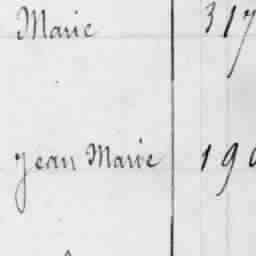 Marie 317
Jean Marie 190